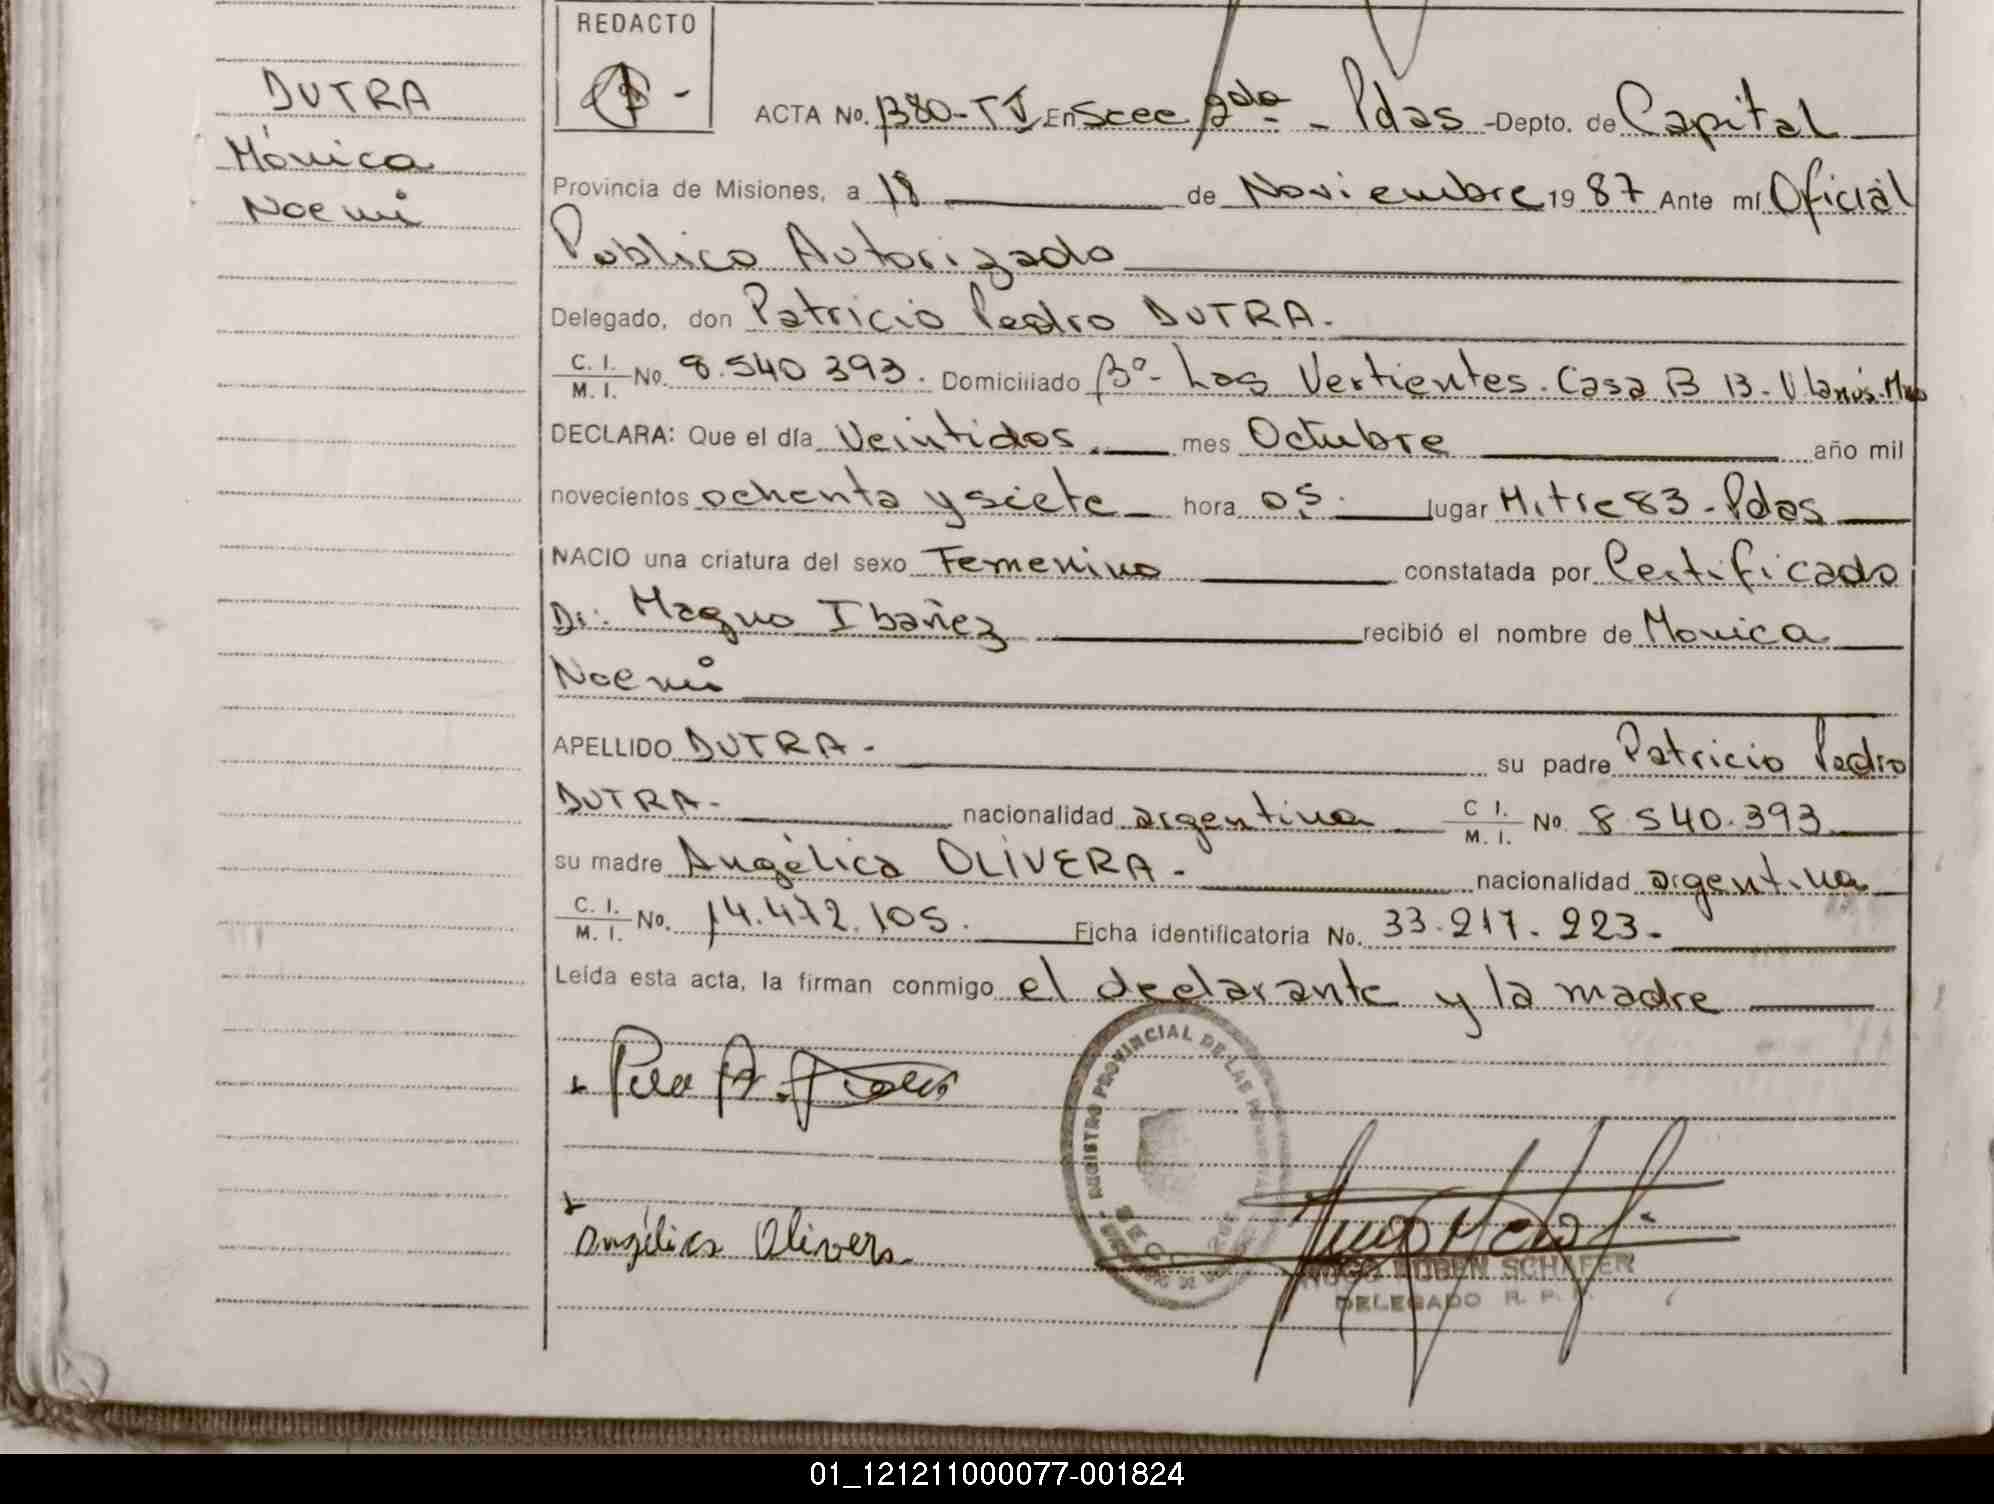 REDACTO
DUTRA
Mónica
Noemi
ACTA No. 1380-TV En Scec 2da - Pdas - Depto. de Capital
Provincia de Misiones, a 18 de Noviembre 1987 Ante mí Oficial
Publico Autorizado
Delegado, don Patricio Pedro DUTRA.
C. I. / M. I. No. 8.540 393. Domiciliado Bº- Las Vertientes. Casa B 13- V. Lanús.
DECLARA: Que el día Veintidos mes Octubre año mil
novecientos ochenta y siete hora 05. lugar Mitre 83 - Pdas
NACIO una criatura del sexo Femenino constatada por Certificado
Dr. Magno Ibañez recibió el nombre de Monica
Noemi
APELLIDO DUTRA - su padre Patricio Pedro
DUTRA- nacionalidad argentina C I. / M. I. No. 8.540.393
su madre Angélica OLIVERA - nacionalidad argentina
C. I. / M. I. No. 14.472.105. Ficha identificatoria No. 33.217.223-
Leída esta acta, la firman conmigo el declarante y la madre
REGISTRO PROVINCIAL DE LAS PERSONAS
Angélica Olivera
HUGO RUBEN SCHAFER
DELEGADO R. P. P.
01_121211000077-001824